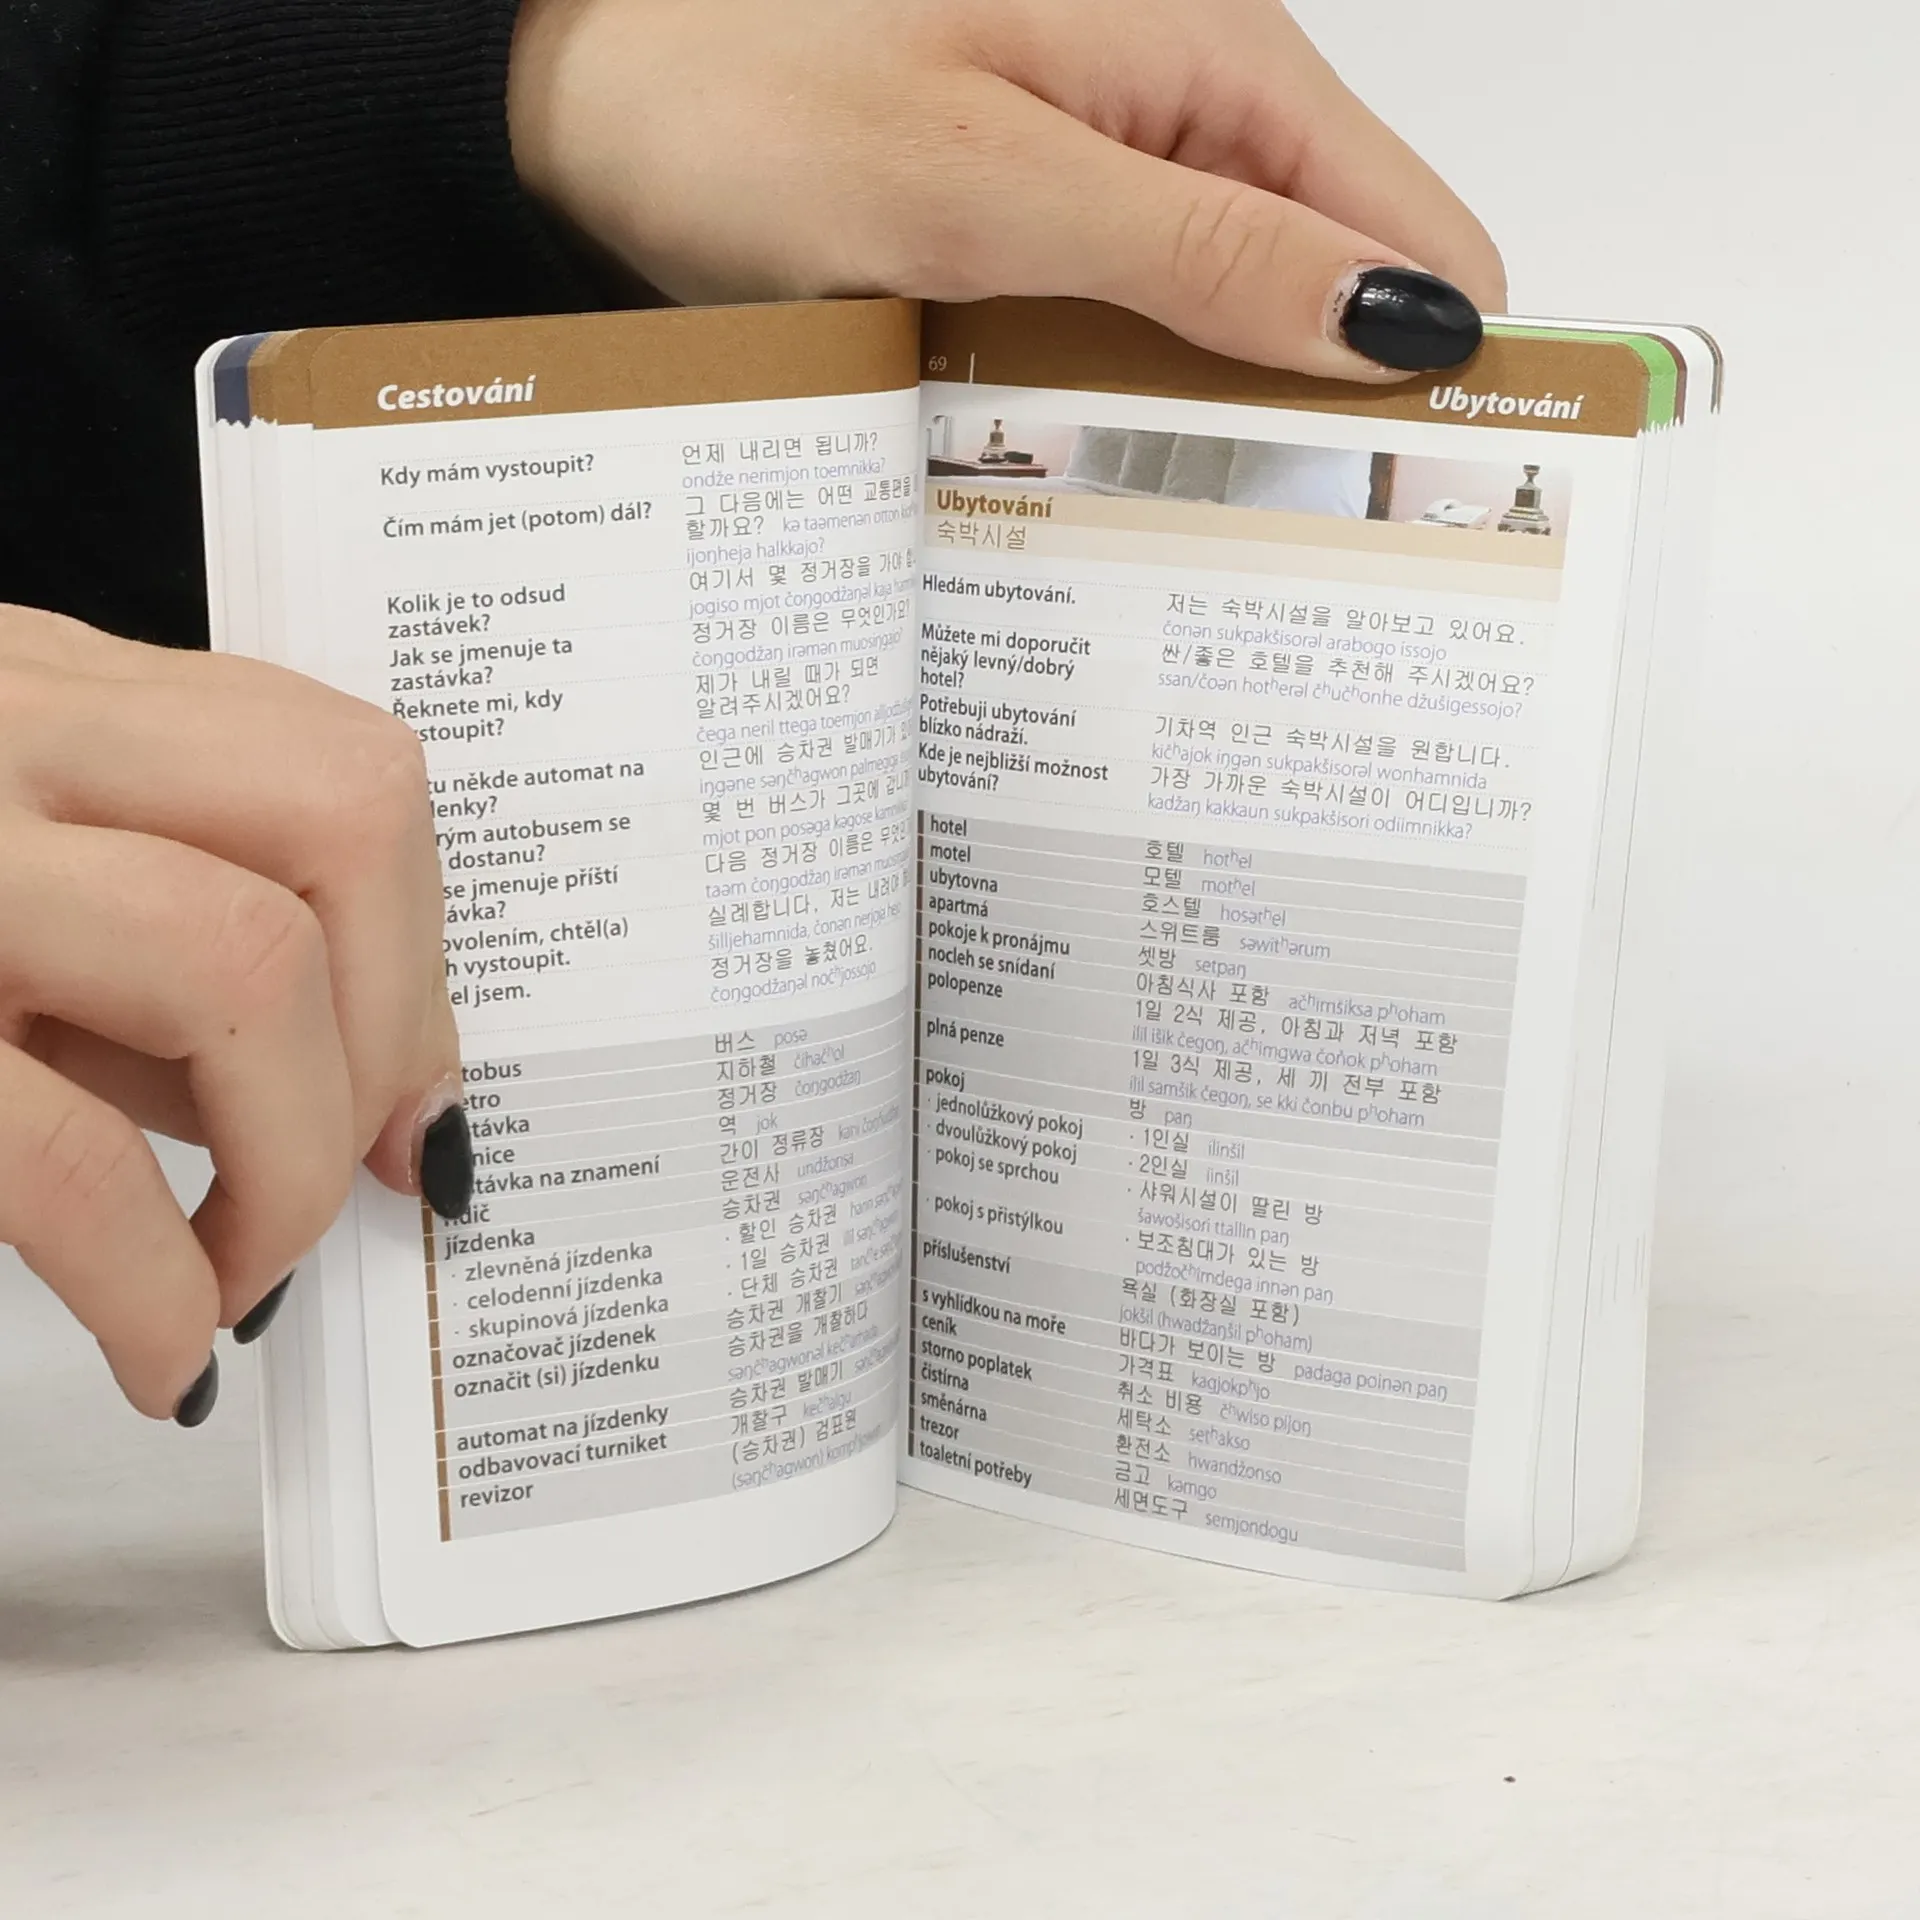 Cestování
Kdy mám vystoupit?
언제 내리면 됩니까?
ondže nerimjon toemnikka?
Čím mám jet (potom) dál?
그 다음에는 어떤 교통편을
할까요? kə taəmenən otton
ijoŋheja halkkajo?
Kolik je to odsud
zastávek?
여기서 몇 정거장을 가야
jogiso mjot čoŋgodžaŋəl kaja
Jak se jmenuje ta
zastávka?
정거장 이름은 무엇인가요?
čoŋgodžaŋ irəmən muosingajo?
Řeknete mi, kdy
stoupit?
제가 내릴 때가 되면
알려주시겠어요?
čega neril ttega toemjon
tu někde automat na
lenky?
인근에 승차권 발매기가
iŋgəne səŋčʰagwon palmegiga
rým autobusem se
dostanu?
몇 번 버스가 그곳에 갑니까
mjot pon posəga kəgose kamnikka
se jmenuje příští
ávka?
다음 정거장 이름은
taəm čoŋgodžaŋ irəmən
ovolením, chtěl(a)
h vystoupit.
실례합니다, 저는 내려야
šilljehamnida, čonən nerjoja
el jsem.
정거장을 놓쳤어요.
čoŋgodžaŋəl nočʰjossojo
tobus
버스 posə
etro
지하철 čihačʰol
távka
정거장 čoŋgodžaŋ
nice
역 jok
távka na znamení
간이 정류장 kani
idič
운전사 undžonsa
jízdenka
승차권 səŋčʰagwon
· zlevněná jízdenka
· 할인 승차권
· celodenní jízdenka
· 1일 승차권
· skupinová jízdenka
· 단체 승차권
označovač jízdenek
승차권 개찰기
označit (si) jízdenku
승차권을 개찰하다
səŋčʰagwonəl kečʰarhada
automat na jízdenky
승차권 발매기
odbavovací turniket
개찰구 kečʰalgu
revizor
(승차권) 검표원
(səŋčʰagwon)
69
Ubytování
Ubytování
숙박시설
Hledám ubytování.
저는 숙박시설을 알아보고 있어요.
čonən sukpakšisorəl arabogo issojo
Můžete mi doporučit
nějaký levný/dobrý
hotel?
싼/좋은 호텔을 추천해 주시겠어요?
ssan/čoən hotʰerəl čʰučʰonhe džušigessojo?
Potřebuji ubytování
blízko nádraží.
기차역 인근 숙박시설을 원합니다.
kičʰajok iŋgən sukpakšisorəl wonhamnida
Kde je nejbližší možnost
ubytování?
가장 가까운 숙박시설이 어디입니까?
kadžaŋ kakkaun sukpakšisori odiimnikka?
hotel
호텔 hotʰel
motel
모텔 motʰel
ubytovna
호스텔 hosətʰel
apartmá
스위트룸 səwitʰərum
pokoje k pronájmu
셋방 setpaŋ
nocleh se snídaní
아침식사 포함 ačʰimšiksa pʰoham
polopenze
1일 2식 제공, 아침과 저녁 포함
ilil išik čegoŋ, ačʰimgwa čoňok pʰoham
plná penze
1일 3식 제공, 세 끼 전부 포함
ilil samšik čegoŋ, se kki čonbu pʰoham
pokoj
방 paŋ
· jednolůžkový pokoj
· 1인실 ilinšil
· dvoulůžkový pokoj
· 2인실 iinšil
· pokoj se sprchou
· 샤워시설이 딸린 방
šawošisori ttallin paŋ
· pokoj s přistýlkou
· 보조침대가 있는 방
podžočʰimdega innən paŋ
příslušenství
욕실 (화장실 포함)
jokšil (hwadžaŋšil pʰoham)
s vyhlídkou na moře
바다가 보이는 방 padaga poinən paŋ
ceník
가격표 kagjokpʰjo
storno poplatek
취소 비용 čʰwiso pijoŋ
čistírna
세탁소 setʰakso
směnárna
환전소 hwandžonso
trezor
금고 kəmgo
toaletní potřeby
세면도구 semjondogu